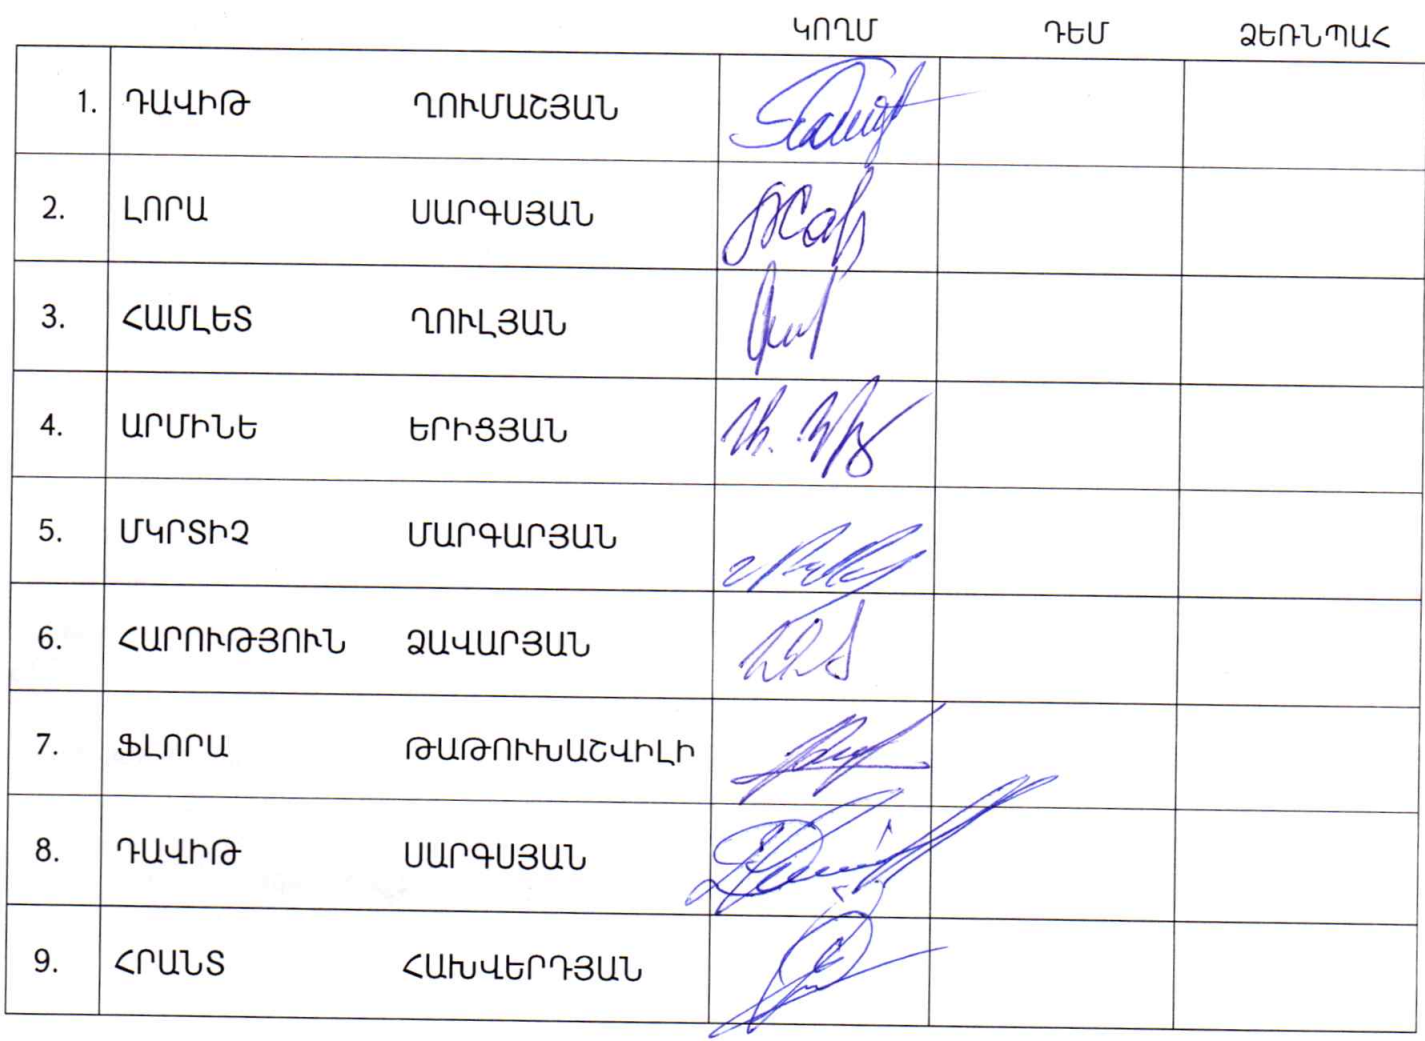 ԿՈՂՄ ԴԵՄ ՁԵՌՆՊԱՀ
1. ԴԱՎԻԹ ՂՈՒՄԱՇՅԱՆ
2. ԼՈՐԱ ՍԱՐԳՍՅԱՆ
3. ՀԱՄԼԵՏ ՂՈՒԼՅԱՆ
4. ԱՐՄԻՆԵ ԵՐԻՑՅԱՆ
5. ՄԿՐՏԻՉ ՄԱՐԳԱՐՅԱՆ
6. ՀԱՐՈՒԹՅՈՒՆ ՁԱՎԱՐՅԱՆ
7. ՖԼՈՐԱ ԹԱԹՈՒԽԱՇՎԻԼԻ
8. ԴԱՎԻԹ ՍԱՐԳՍՅԱՆ
9. ՀՐԱՆՏ ՀԱԽՎԵՐԴՅԱՆ